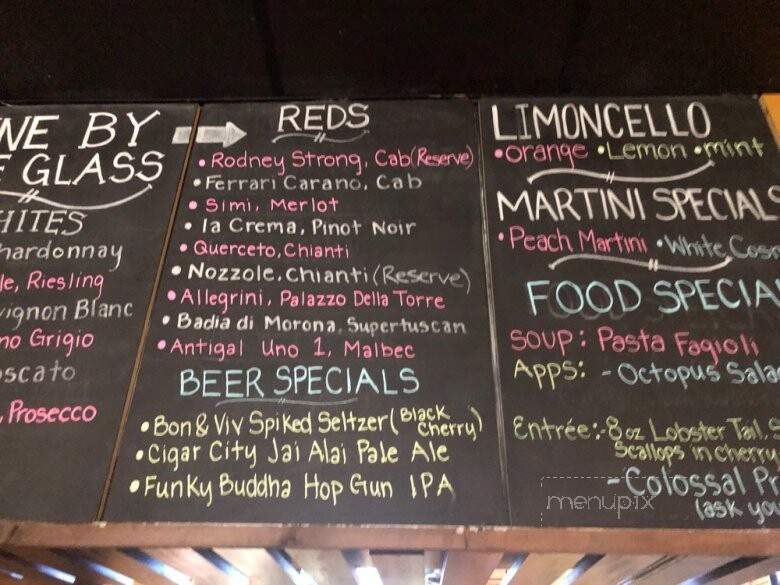 NE BY
GLASS
HITES
hardonnay
le, Riesling
vignon Blanc
no Grigio
oscato
, Prosecco
REDS
• Rodney Strong, Cab (Reserve)
• Ferrari Carano, Cab
• Simi, Merlot
• la Crema, Pinot Noir
• Querceto, Chianti
• Nozzole, Chianti (Reserve)
• Allegrini, Palazzo Della Torre
• Badia di Morona, Supertuscan
• Antigal Uno 1, Malbec
BEER SPECIALS
• Bon & Viv Spiked Seltzer (Black Cherry)
• Cigar City Jai Alai Pale Ale
• Funky Buddha Hop Gun IPA
LIMONCELLO
• orange • Lemon • mint
MARTINI SPECIALS
• Peach Martini • White Cosm
FOOD SPECIA
SOUP: Pasta Fagioli
Apps: - Octopus Sala
Entrée: - 8 oz Lobster Tail, S
Scallops in cherry
- Colossal Pr
(ask you
menupix